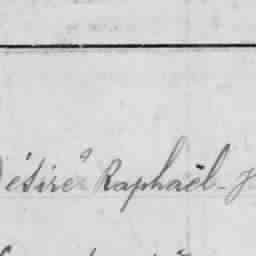 Désiré Raphaël